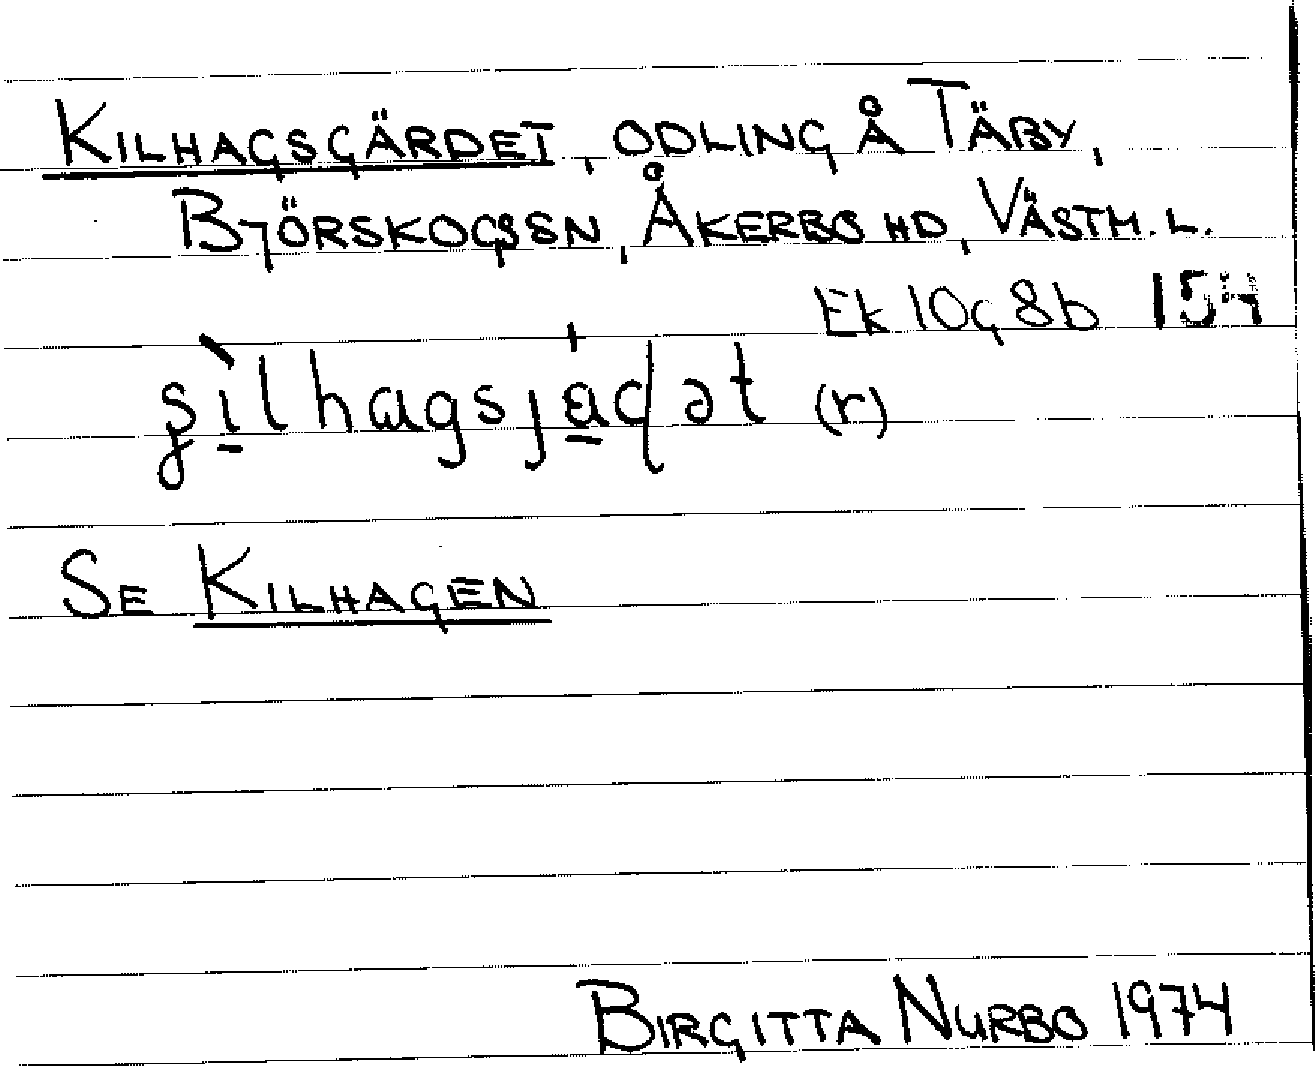 KILHAGSGÄRDET, ODLING Å TÄBY,
BJÖRSKOGS SN, ÅKERBO HD, VÄSTM. L.
Ek 10g 8b 154
ʂìlhagsjáɖət (r)
SE KILHAGEN
BIRGITTA NURBO 1974